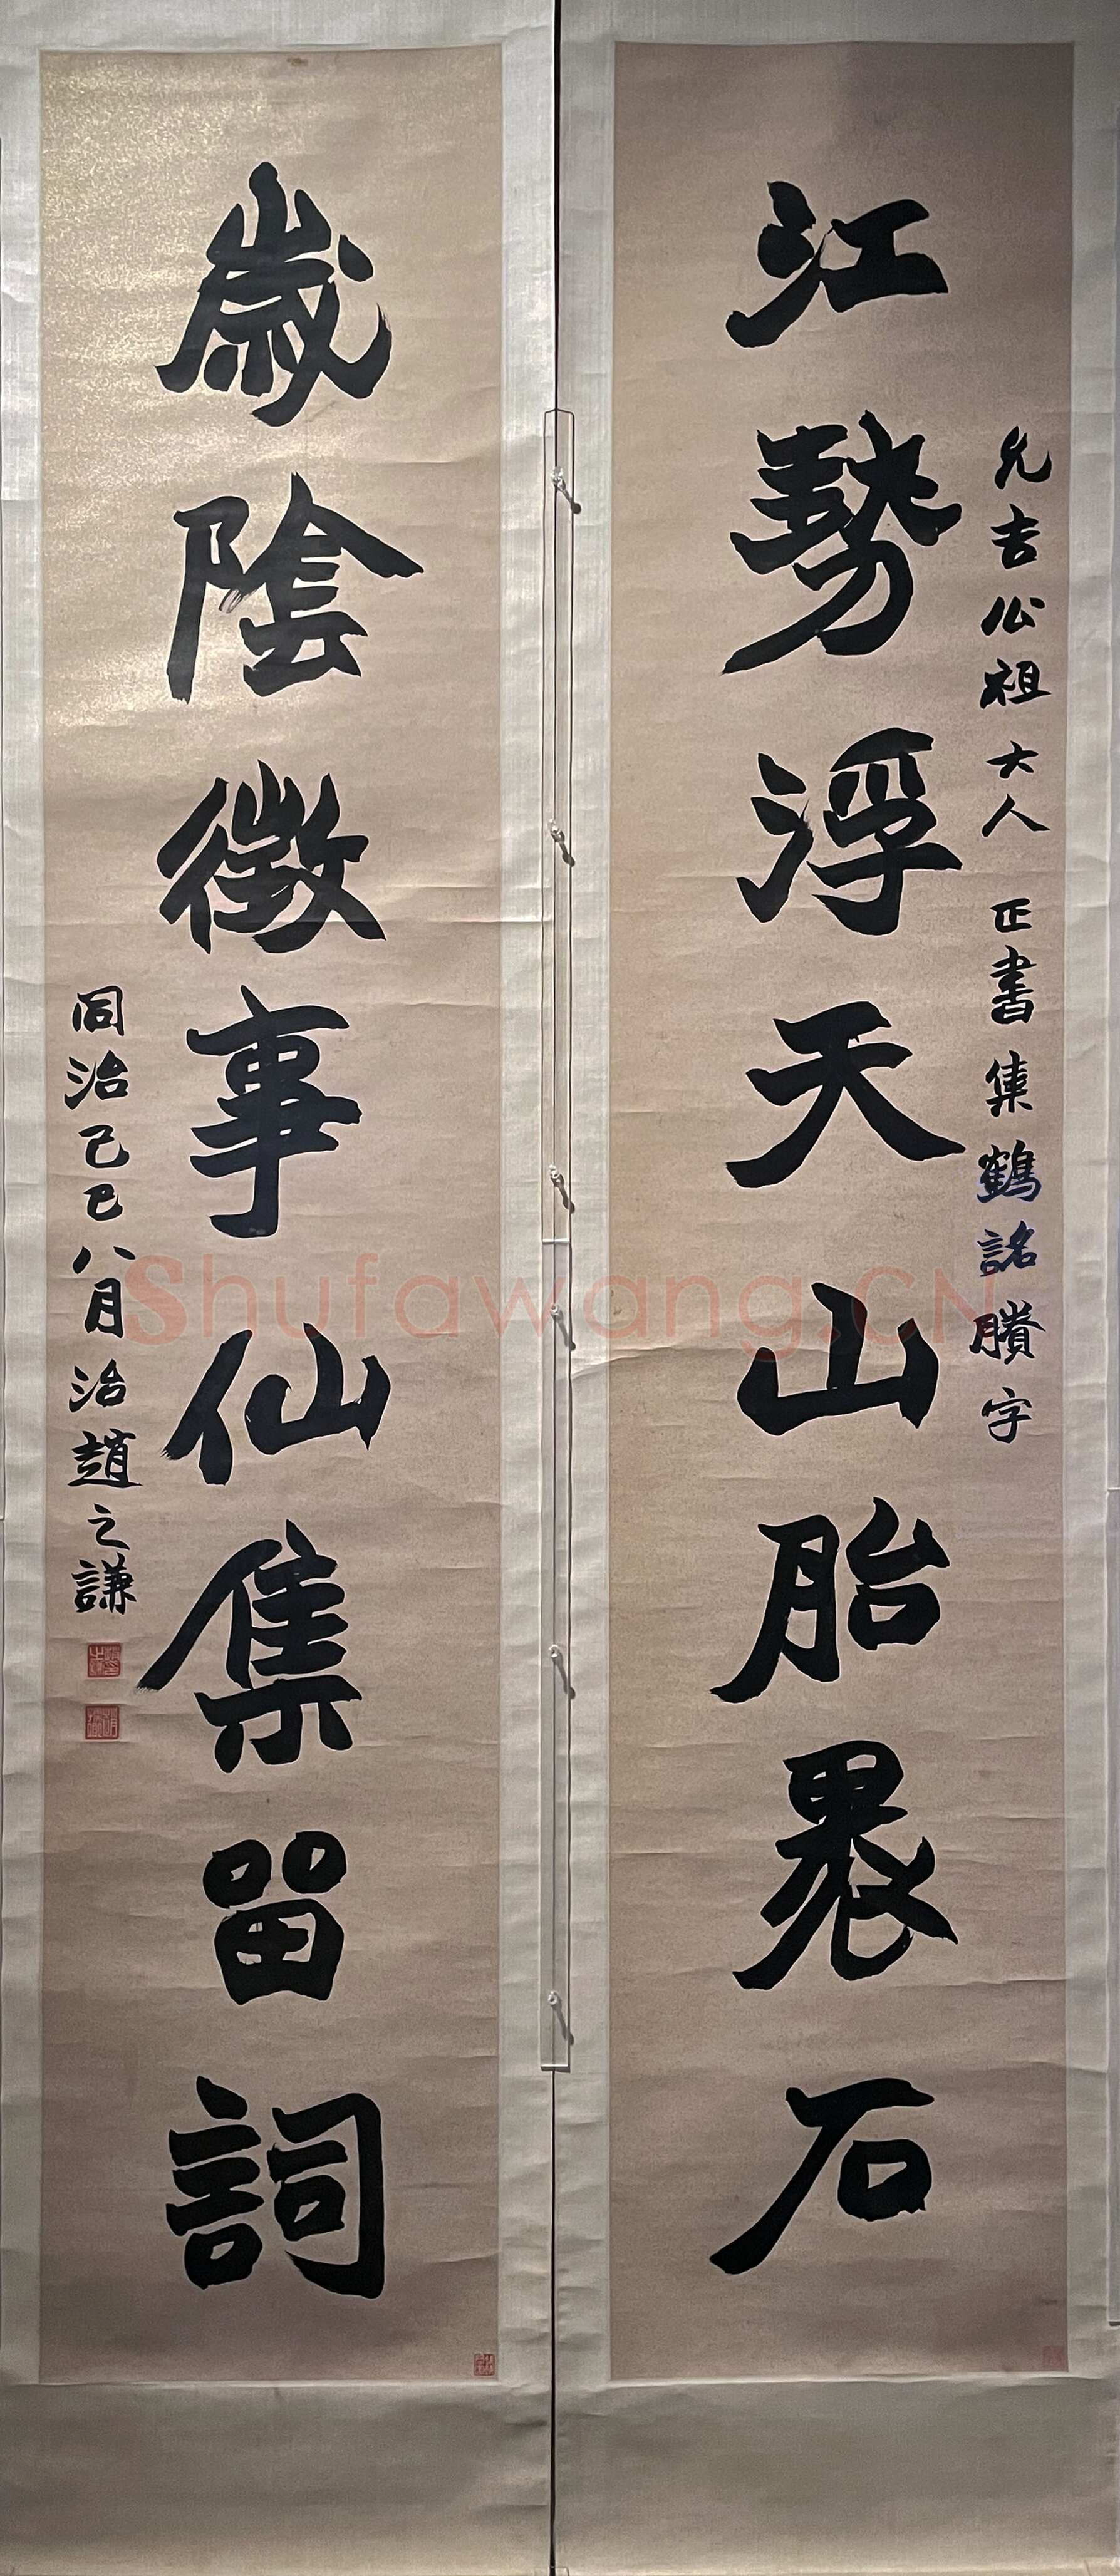 江勢浮天山胎異石
允吉公祖大人正書集鶴銘賸字
歲陰徵事仙集留詞
同治己巳八月治趙之謙
Shufawang.CN